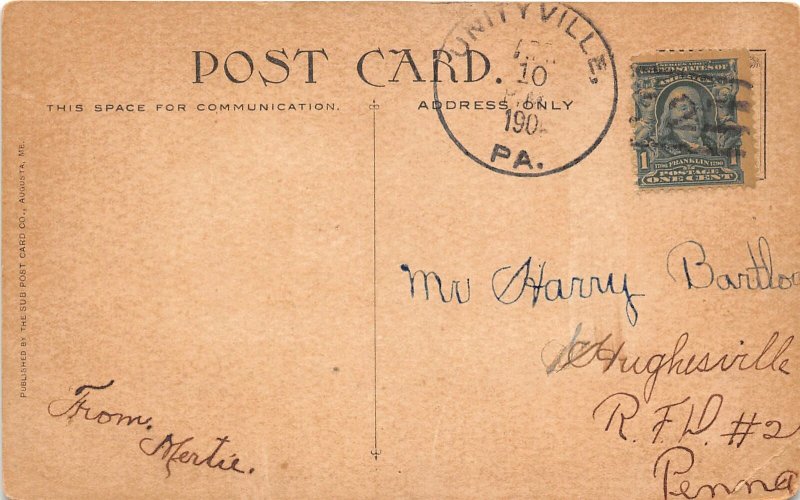 POST CARD.
THIS SPACE FOR COMMUNICATION.
ADDRESS ONLY
UNITYVILLE,
10
190
PA.
SERIES 1902
UNITED STATES OF
AMERICA
1706 FRANKLIN 1790
1 POSTAGE 1
ONE CENT
PUBLISHED BY THE SUB POST CARD CO., AUGUSTA, ME.
Mr Harry Bartlow
Hughesville
R.F.D. #2
Penna
From.
Mertie.